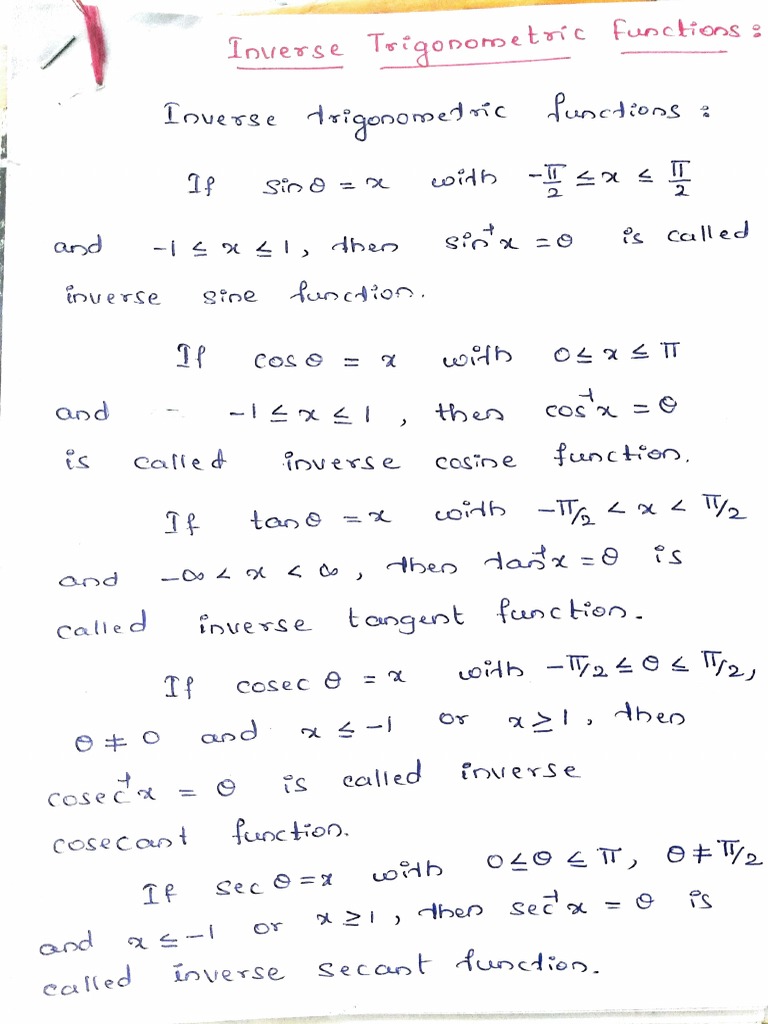 Inverse Trigonometric Functions :
Inverse trigonometric functions :
If sin θ = x with -π/2 ≤ x ≤ π/2
and -1 ≤ x ≤ 1, then sin⁻¹x = θ is called
inverse sine function.
If cos θ = x with 0 ≤ x ≤ π
and -1 ≤ x ≤ 1, then cos⁻¹x = θ
is called inverse cosine function.
If tan θ = x with -π/2 < x < π/2
and -∞ < x < ∞, then tan⁻¹x = θ is
called inverse tangent function.
If cosec θ = x with -π/2 ≤ θ ≤ π/2,
θ ≠ 0 and x ≤ -1 or x ≥ 1, then
cosec⁻¹x = θ is called inverse
cosecant function.
If sec θ = x with 0 ≤ θ ≤ π, θ ≠ π/2
and x ≤ -1 or x ≥ 1, then sec⁻¹x = θ is
called inverse secant function.